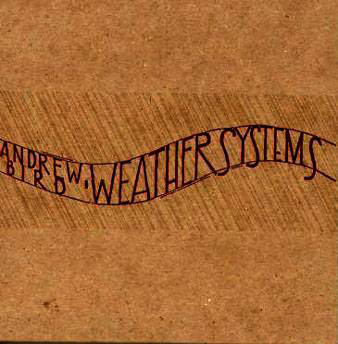 ANDREW BIRD, WEATHER SYSTEMS